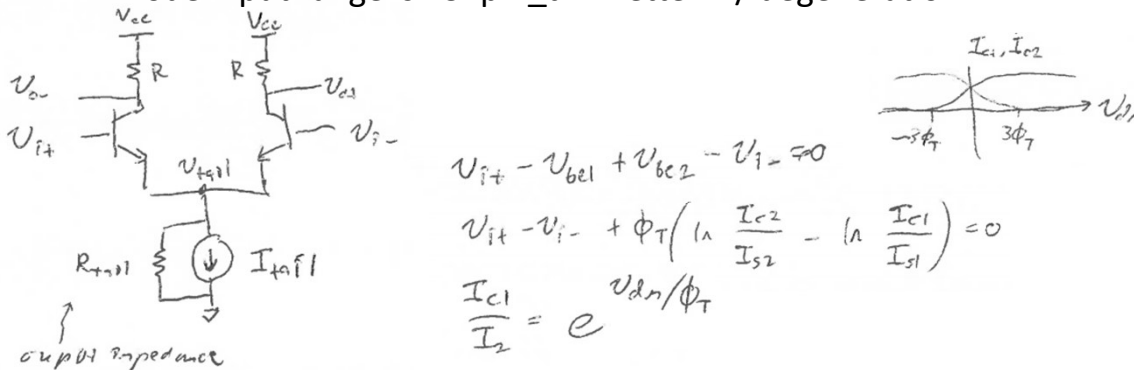 Vcc Vcc
R R
Vo-
Vi+ Vi-
Vtail
Rtail Itail
output impedance
Ic1, Ic2
-3ϕT 3ϕT
Vi+ - Vbe1 + Vbe2 - Vi- = 0
Vi+ - Vi- + ϕT(ln Ic2/Is2 - ln Ic1/Is1) = 0
Ic1/I2 = e^Vdn/ϕT